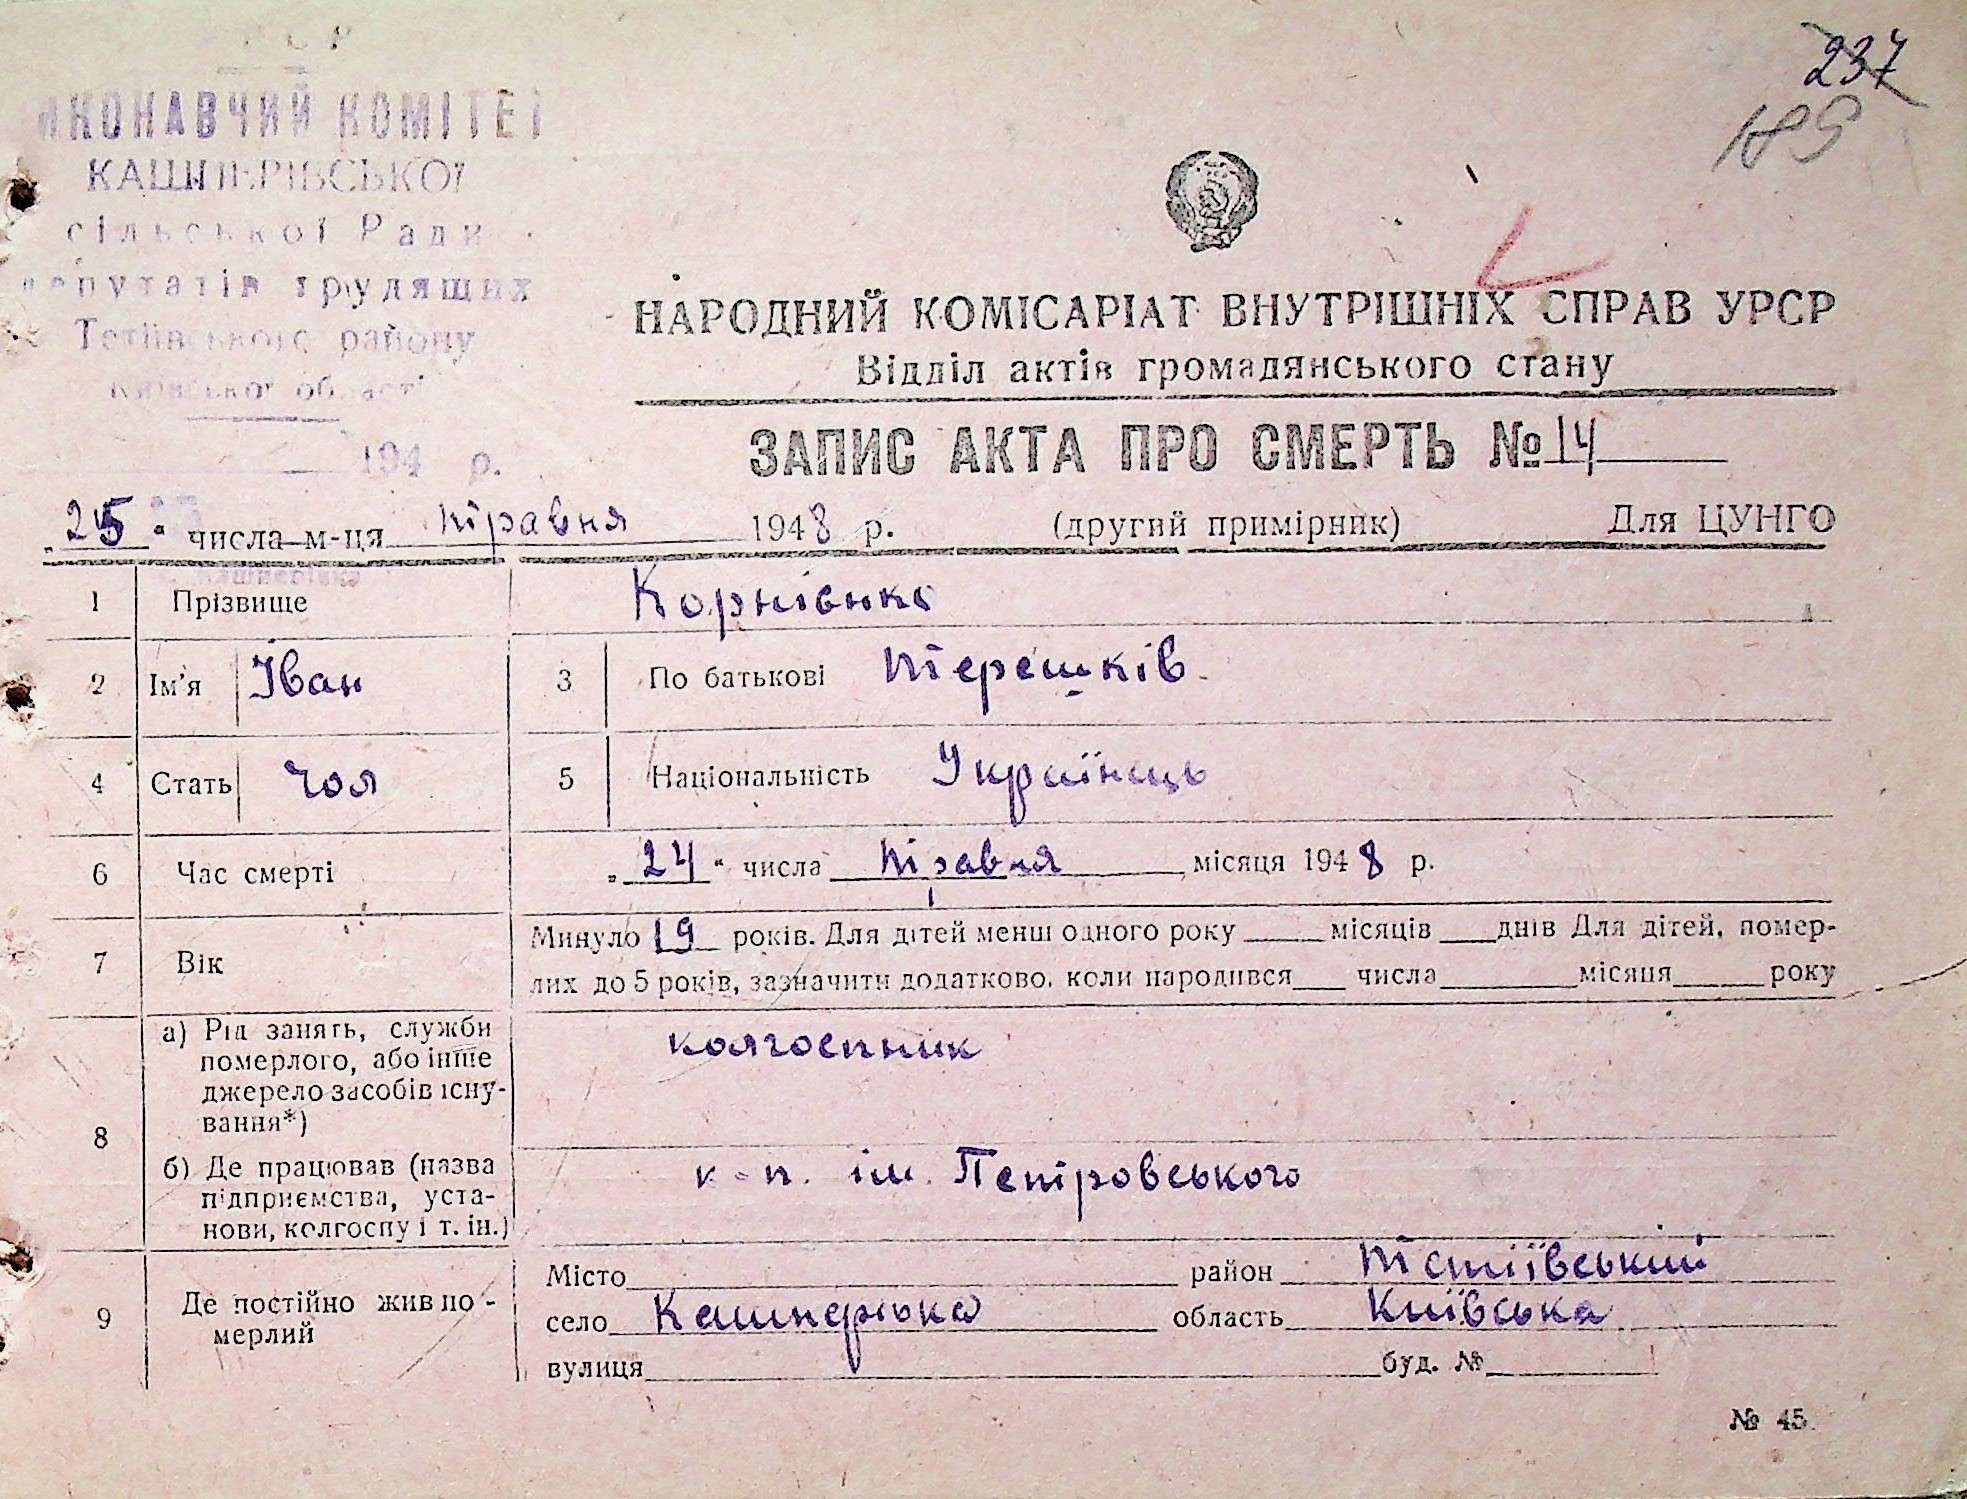 237
189
УРСР
ВИКОНАВЧИЙ КОМІТЕТ
КАШПЕРІВСЬКОЇ
сільської Ради
депутатів трудящих
Тетіївського району
Київської області
194 р.
НАРОДНИЙ КОМІСАРІАТ ВНУТРІШНІХ СПРАВ УРСР
Відділ актів громадянського стану
ЗАПИС АКТА ПРО СМЕРТЬ № 14
„25“ числа м-ця травня 1948 р. (другий примірник) Для ЦУНГО
1 Прізвище Корнієнко
2 Ім’я Іван 3 По батькові Терешків
4 Стать чол 5 Національність Українець
6 Час смерті „24“ числа травня місяця 1948 р.
7 Вік Минуло 19 років. Для дітей менш одного року місяців днів Для дітей, помер-
лих до 5 років, зазначити додатково, коли народився числа місяця року
8 а) Рід занять, служби
померлого, або інше
джерело засобів існу-
вання*)
колгоспник
б) Де працював (назва
підприємства, уста-
нови, колгоспу і т. ін.)
к-п. ім. Петровського
9 Де постійно жив по-
мерлий
Місто район Тетіївський
село Кашперівка область Київська
вулиця буд. №
№ 45.